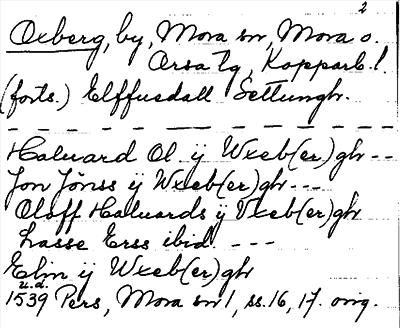 2
Oxberg, by, Mora sn, Mora o.
Orsa tg, Kopparb. l.
(forts.) Elffuedall Settungh.
Haluard Ol. ij Wxeb(er)gh --
Jon Jönss ij Wxeb(er)gh ---
Oloff Haluards ij Vxeb(er)gh
Lasse Erss ibid. ---
Elin ij Wxeb(er)gh
u.a.
1539 Pers, Mora sn 1, ss. 16, 17. orig.